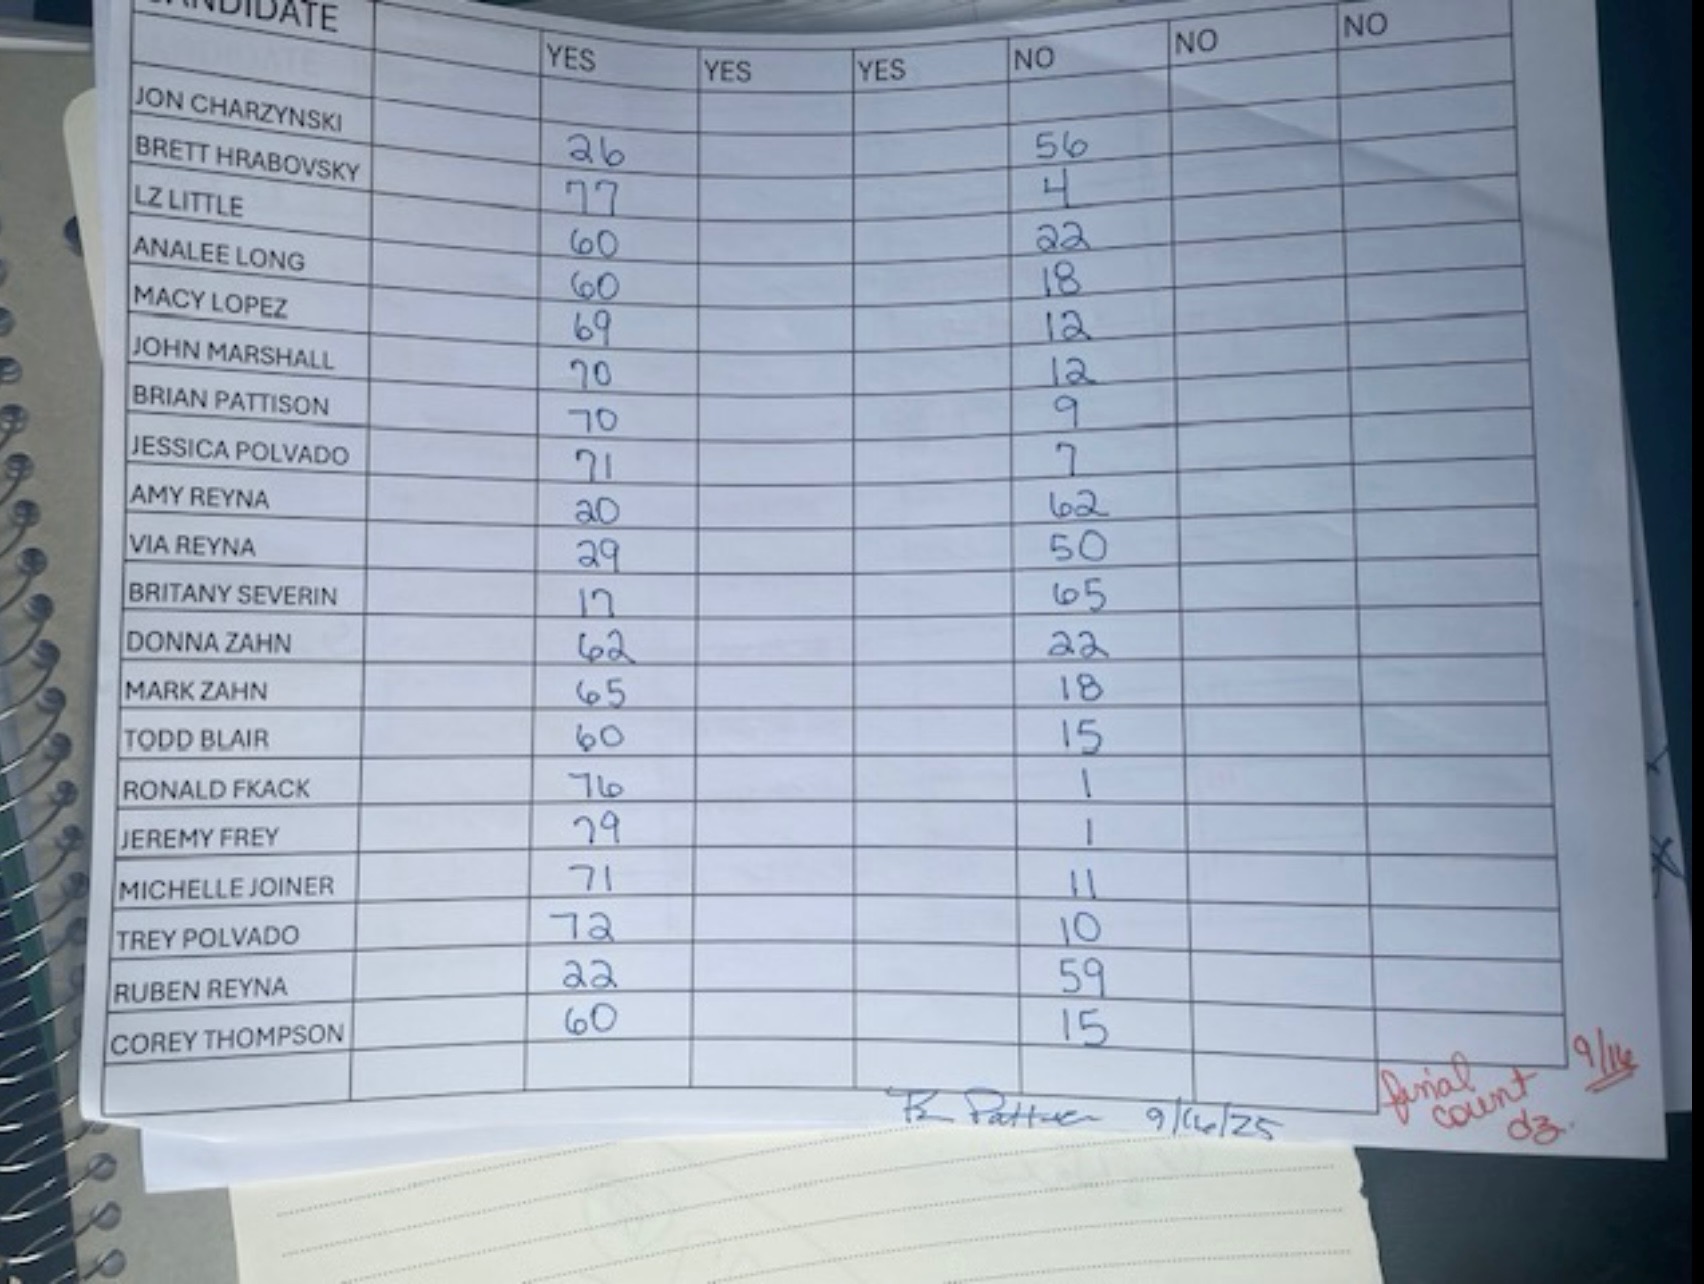 CANDIDATE YES YES YES NO NO NO
JON CHARZYNSKI 26 56
BRETT HRABOVSKY 77 4
LZ LITTLE 60 22
ANALEE LONG 60 18
MACY LOPEZ 69 12
JOHN MARSHALL 70 12
BRIAN PATTISON 70 9
JESSICA POLVADO 71 7
AMY REYNA 20 62
VIA REYNA 29 50
BRITANY SEVERIN 17 65
DONNA ZAHN 62 22
MARK ZAHN 65 18
TODD BLAIR 60 15
RONALD FKACK 76 1
JEREMY FREY 79 1
MICHELLE JOINER 71 11
TREY POLVADO 72 10
RUBEN REYNA 22 59
COREY THOMPSON 60 15
9/16/25
final 9/16
count
dz.